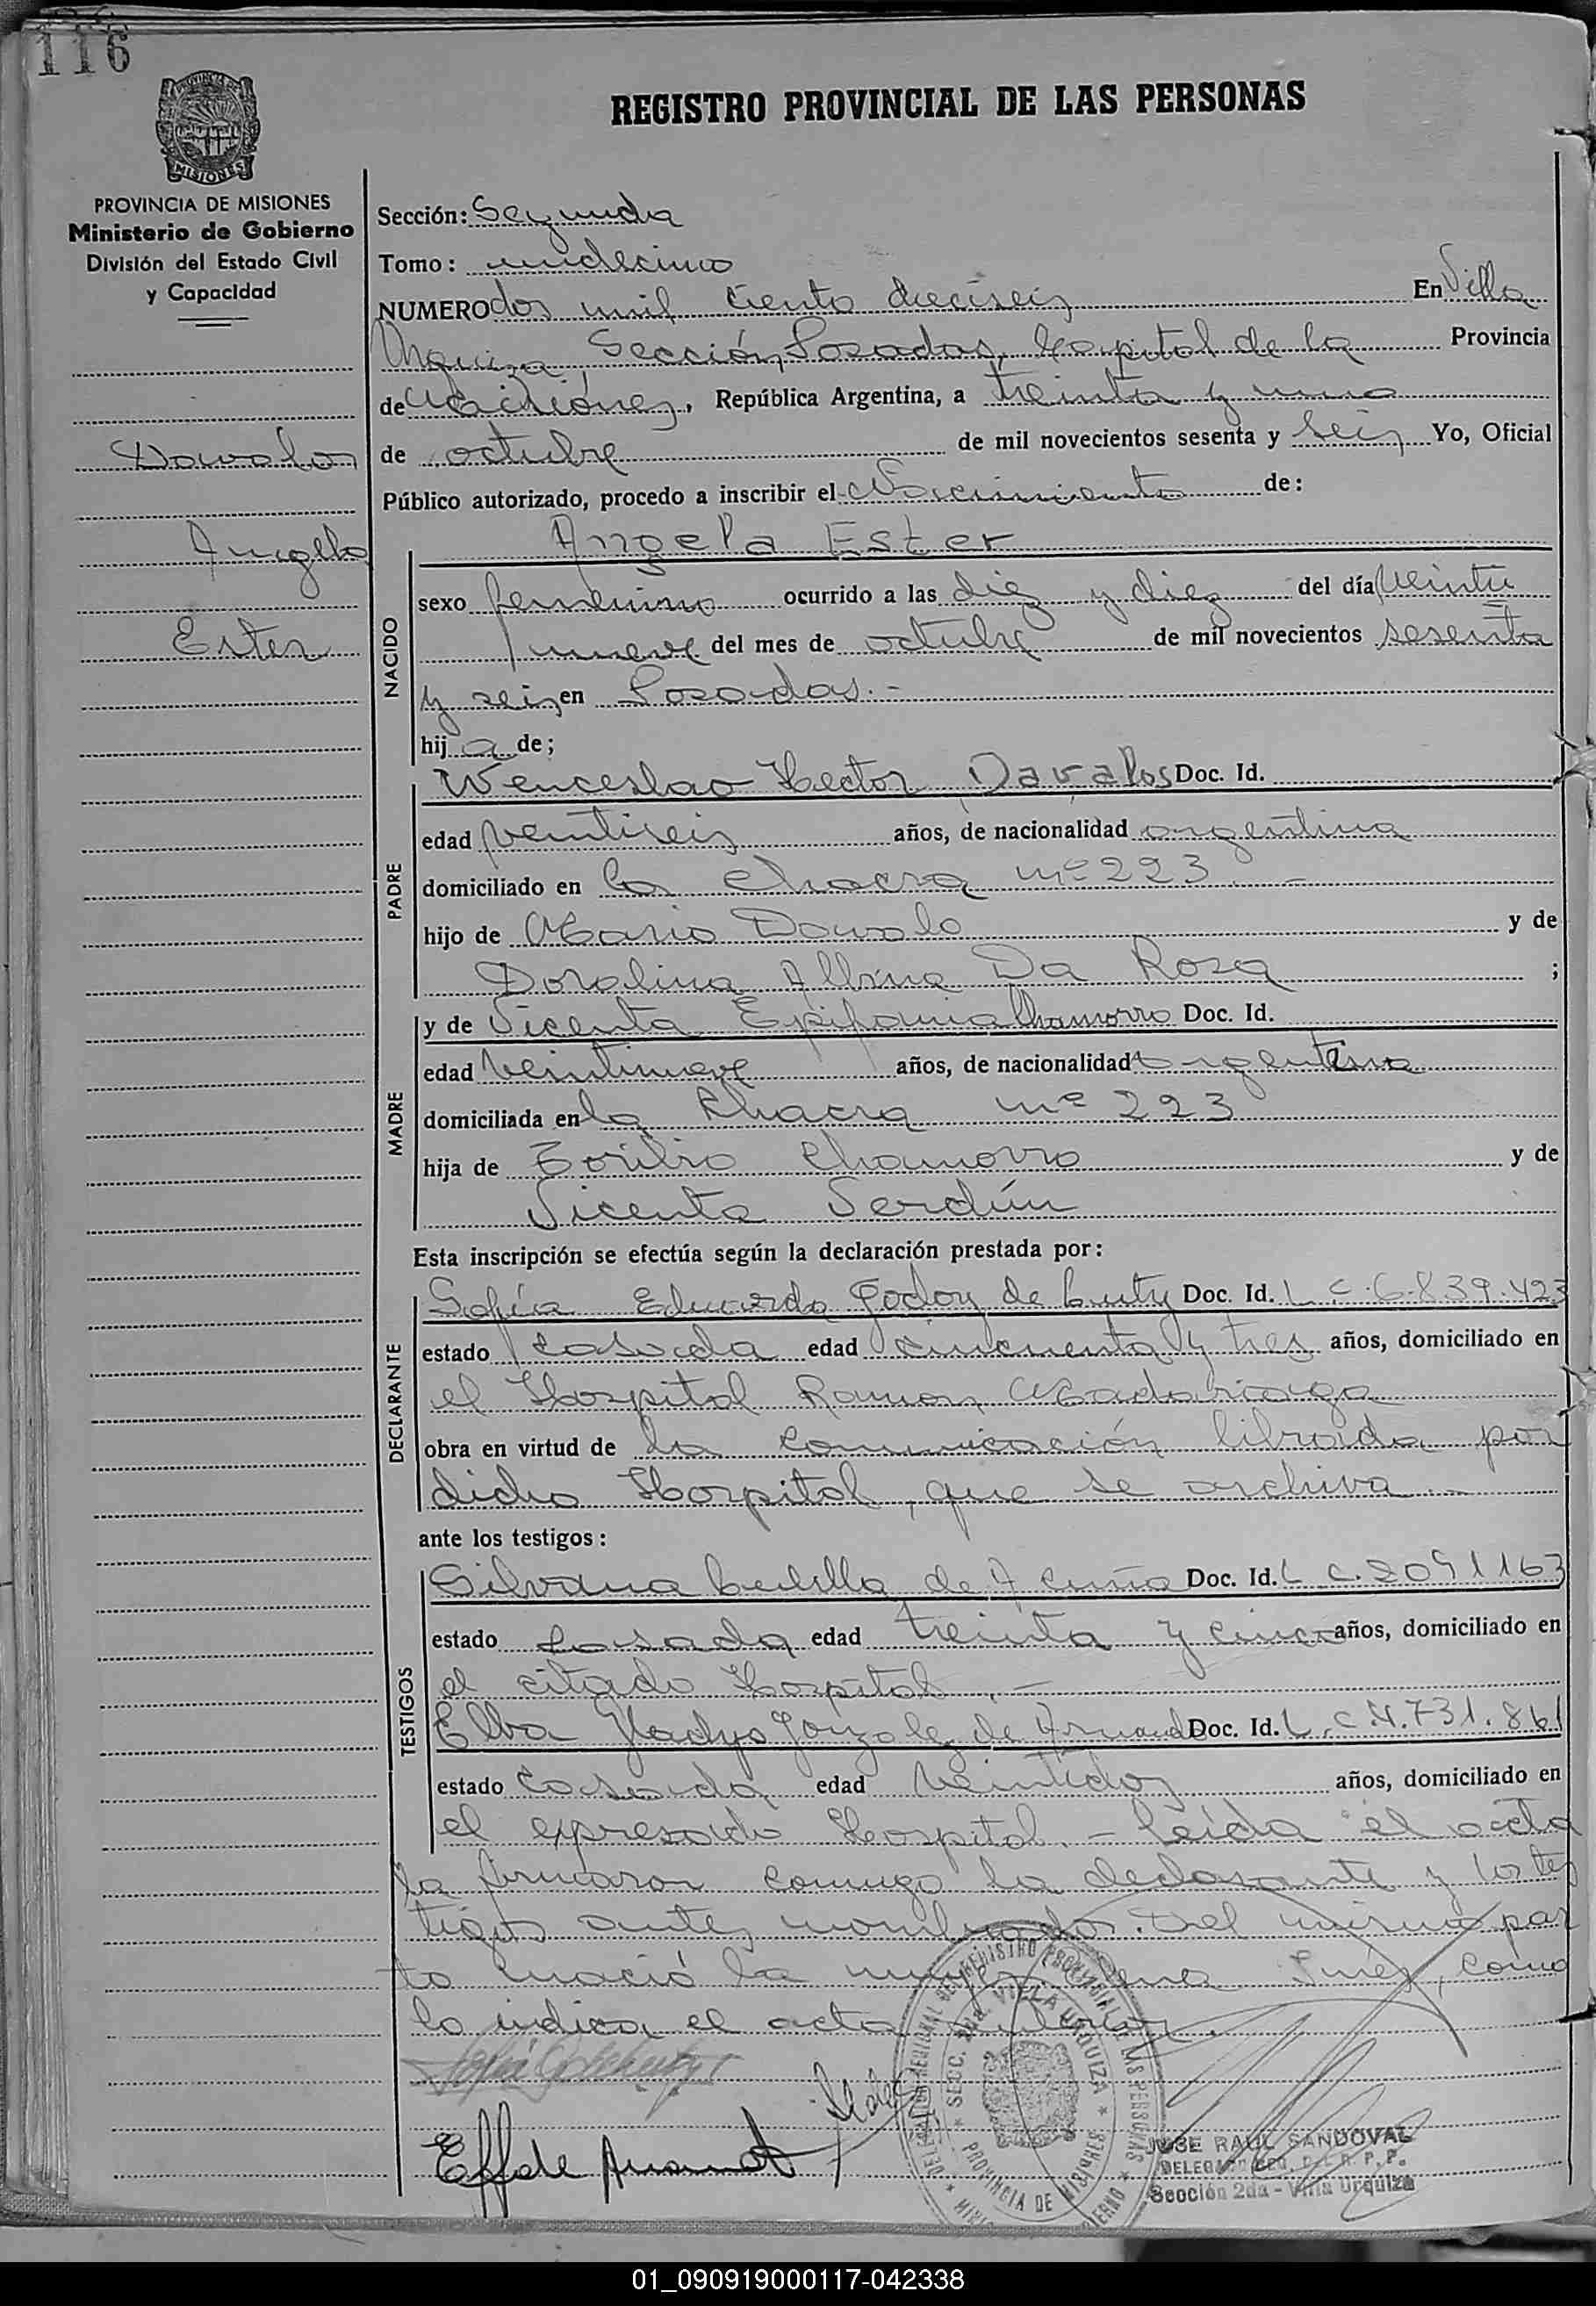 116
PROVINCIA DE
MISIONES
REGISTRO PROVINCIAL DE LAS PERSONAS
PROVINCIA DE MISIONES
Ministerio de Gobierno
División del Estado Civil
y Capacidad
Davalos
Angela
Ester
Sección: Segunda
Tomo: undecimo
NUMERO dos mil ciento dieciseis En Villa
Urquiza, Sección Posadas, Capital de la Provincia
de Misiones, República Argentina, a treinta y uno
de octubre de mil novecientos sesenta y seis Yo, Oficial
Público autorizado, procedo a inscribir el Nacimiento de:
Angela Ester
NACIDO
sexo femenino ocurrido a las diez y diez del día veinti
nueve del mes de octubre de mil novecientos sesenta
y seis en Posadas.-
hij a de;
PADRE
Wenceslao Hector Davalos Doc. Id.
edad veintiseis años, de nacionalidad argentina
domiciliado en la chacra nº 223 -
hijo de Mario Davalo y de
Doralina Albina Da Rosa ;
MADRE
y de Vicenta Epifania Chamorro Doc. Id.
edad veintinueve años, de nacionalidad argentina
domiciliada en la Chacra nº 223
hija de Toribio Chamorro y de
Vicenta Verdún
Esta inscripción se efectúa según la declaración prestada por:
DECLARANTE
Sofía Eduarda Godoy de Doc. Id. L.C. 6.839.423
estado casada edad cincuenta y tres años, domiciliado en
el Hospital Ramon Madariaga
obra en virtud de la comunicación librada por
dicho Hospital, que se archiva.-
ante los testigos:
TESTIGOS
Silvana de Acuña Doc. Id. L.C. 2091163
estado casada edad treinta y cinco años, domiciliado en
el citado Hospital.-
Elba Gladys Gonzalez de Doc. Id. L.C. 4.731.861
estado casada edad veintidos años, domiciliado en
el expresado Hospital.- Leida el acta
la firmaron conmigo la declarante y los tes
tigos antes nombrados. Del mismo par
to nació la Ines, como
lo indica el acta anterior.
DELEGACION REGIONAL DEL REGISTRO PROVINCIAL DE LAS PERSONAS
SECC. 2da. VILLA URQUIZA
PROVINCIA DE MISIONES
JOSE RAUL SANDOVAL
DELEGADO REG. DEL R. P. P.
Sección 2da - Villa Urquiza
01_090919000117-042338